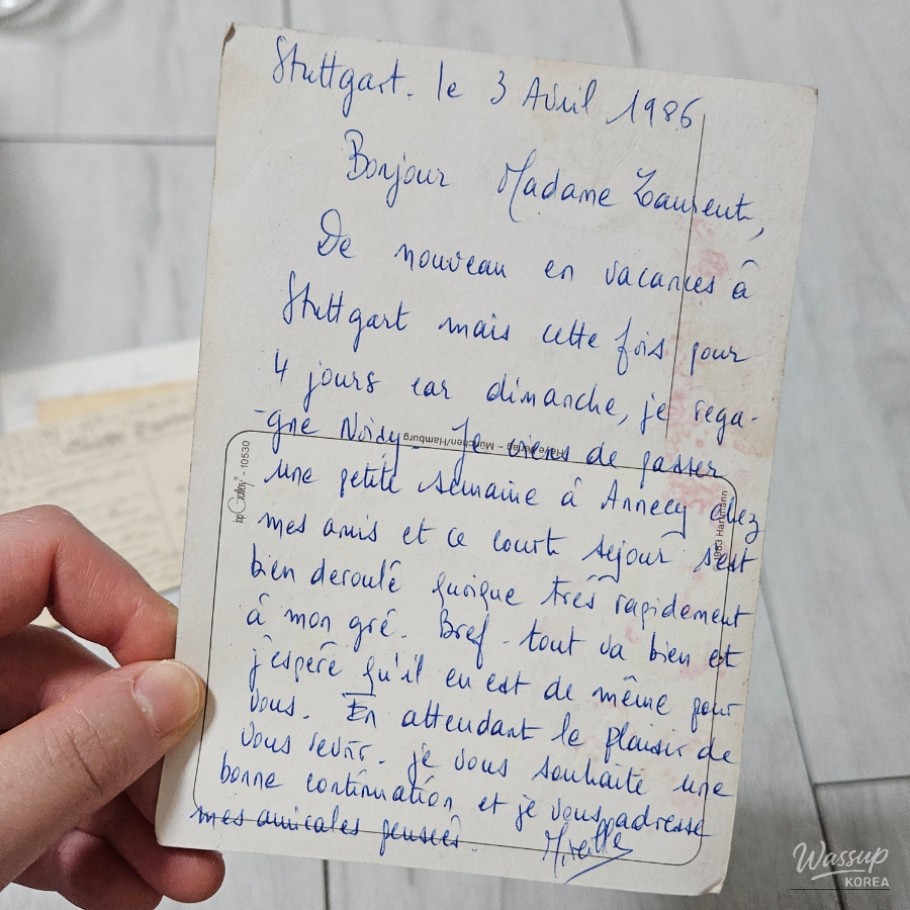 Stuttgart. le 3 Avril 1986
Bonjour Madame Laurent,
De nouveau en vacances à
Stuttgart mais cette fois pour
4 jours car dimanche, je rega-
-gne Noisy. Je viens de passer
une petite semaine à Annecy chez
mes amis et ce court séjour s'est
bien deroulé quoique très rapidement
à mon gré. Bref. tout va bien et
j'espère qu'il en est de même pour
vous. En attendant le plaisir de
vous revoir. je vous souhaite une
bonne continuation et je vous adresse
mes amicales pensées. Mireille
München/Hamburg
10530
1983 Hartmann
Wassup
KOREA